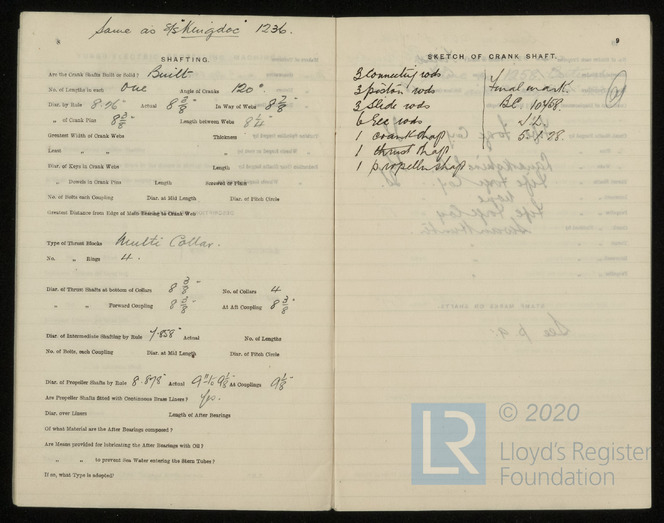 Same as S/S "Kingdoc" 1236.
8
SHAFTING.
Are the Crank Shafts Built or Solid? Built
No. of Lengths in each One Angle of Cranks 120°
Diar. by Rule 8.46" Actual 8 3/8" In Way of Webs 8 7/8"
„ of Crank Pins 8 3/8" Length between Webs 8 1/4"
Greatest Width of Crank Webs Thickness
Least „ „ „
Diar. of Keys in Crank Webs Length
„ Dowels in Crank Pins Length Screwed or Plain
No. of Bolts each Coupling Diar. at Mid Length Diar. of Pitch Circle
Greatest Distance from Edge of Main Bearing to Crank Web
Type of Thrust Blocks Multi Collar.
No. „ Rings 4.
Diar. of Thrust Shafts at bottom of Collars 8 3/8" No. of Collars 4
„ „ Forward Coupling 8 3/8" At Aft Coupling 8 3/8"
Diar. of Intermediate Shafting by Rule 7.858" Actual No. of Lengths
No. of Bolts, each Coupling Diar. at Mid Length Diar. of Pitch Circle
Diar. of Propeller Shafts by Rule 8.878" Actual 9" to 9 1/8" At Couplings 9 1/8"
Are Propeller Shafts fitted with Continuous Brass Liners? Yes.
Diar. over Liners Length of After Bearings
Of what Material are the After Bearings composed?
Are Means provided for lubricating the After Bearings with Oil?
„ „ to prevent Sea Water entering the Stern Tubes?
If so, what Type is adopted?
9
SKETCH OF CRANK SHAFT.
3 Connecting rods
3 piston rods
3 Slide rods
6 Ecc rods
1 crank shaft
1 thrust shaft
1 propeller shaft
Final mark.
5.9.28.
See p 9.
© 2020
LR
Lloyd's Register
Foundation